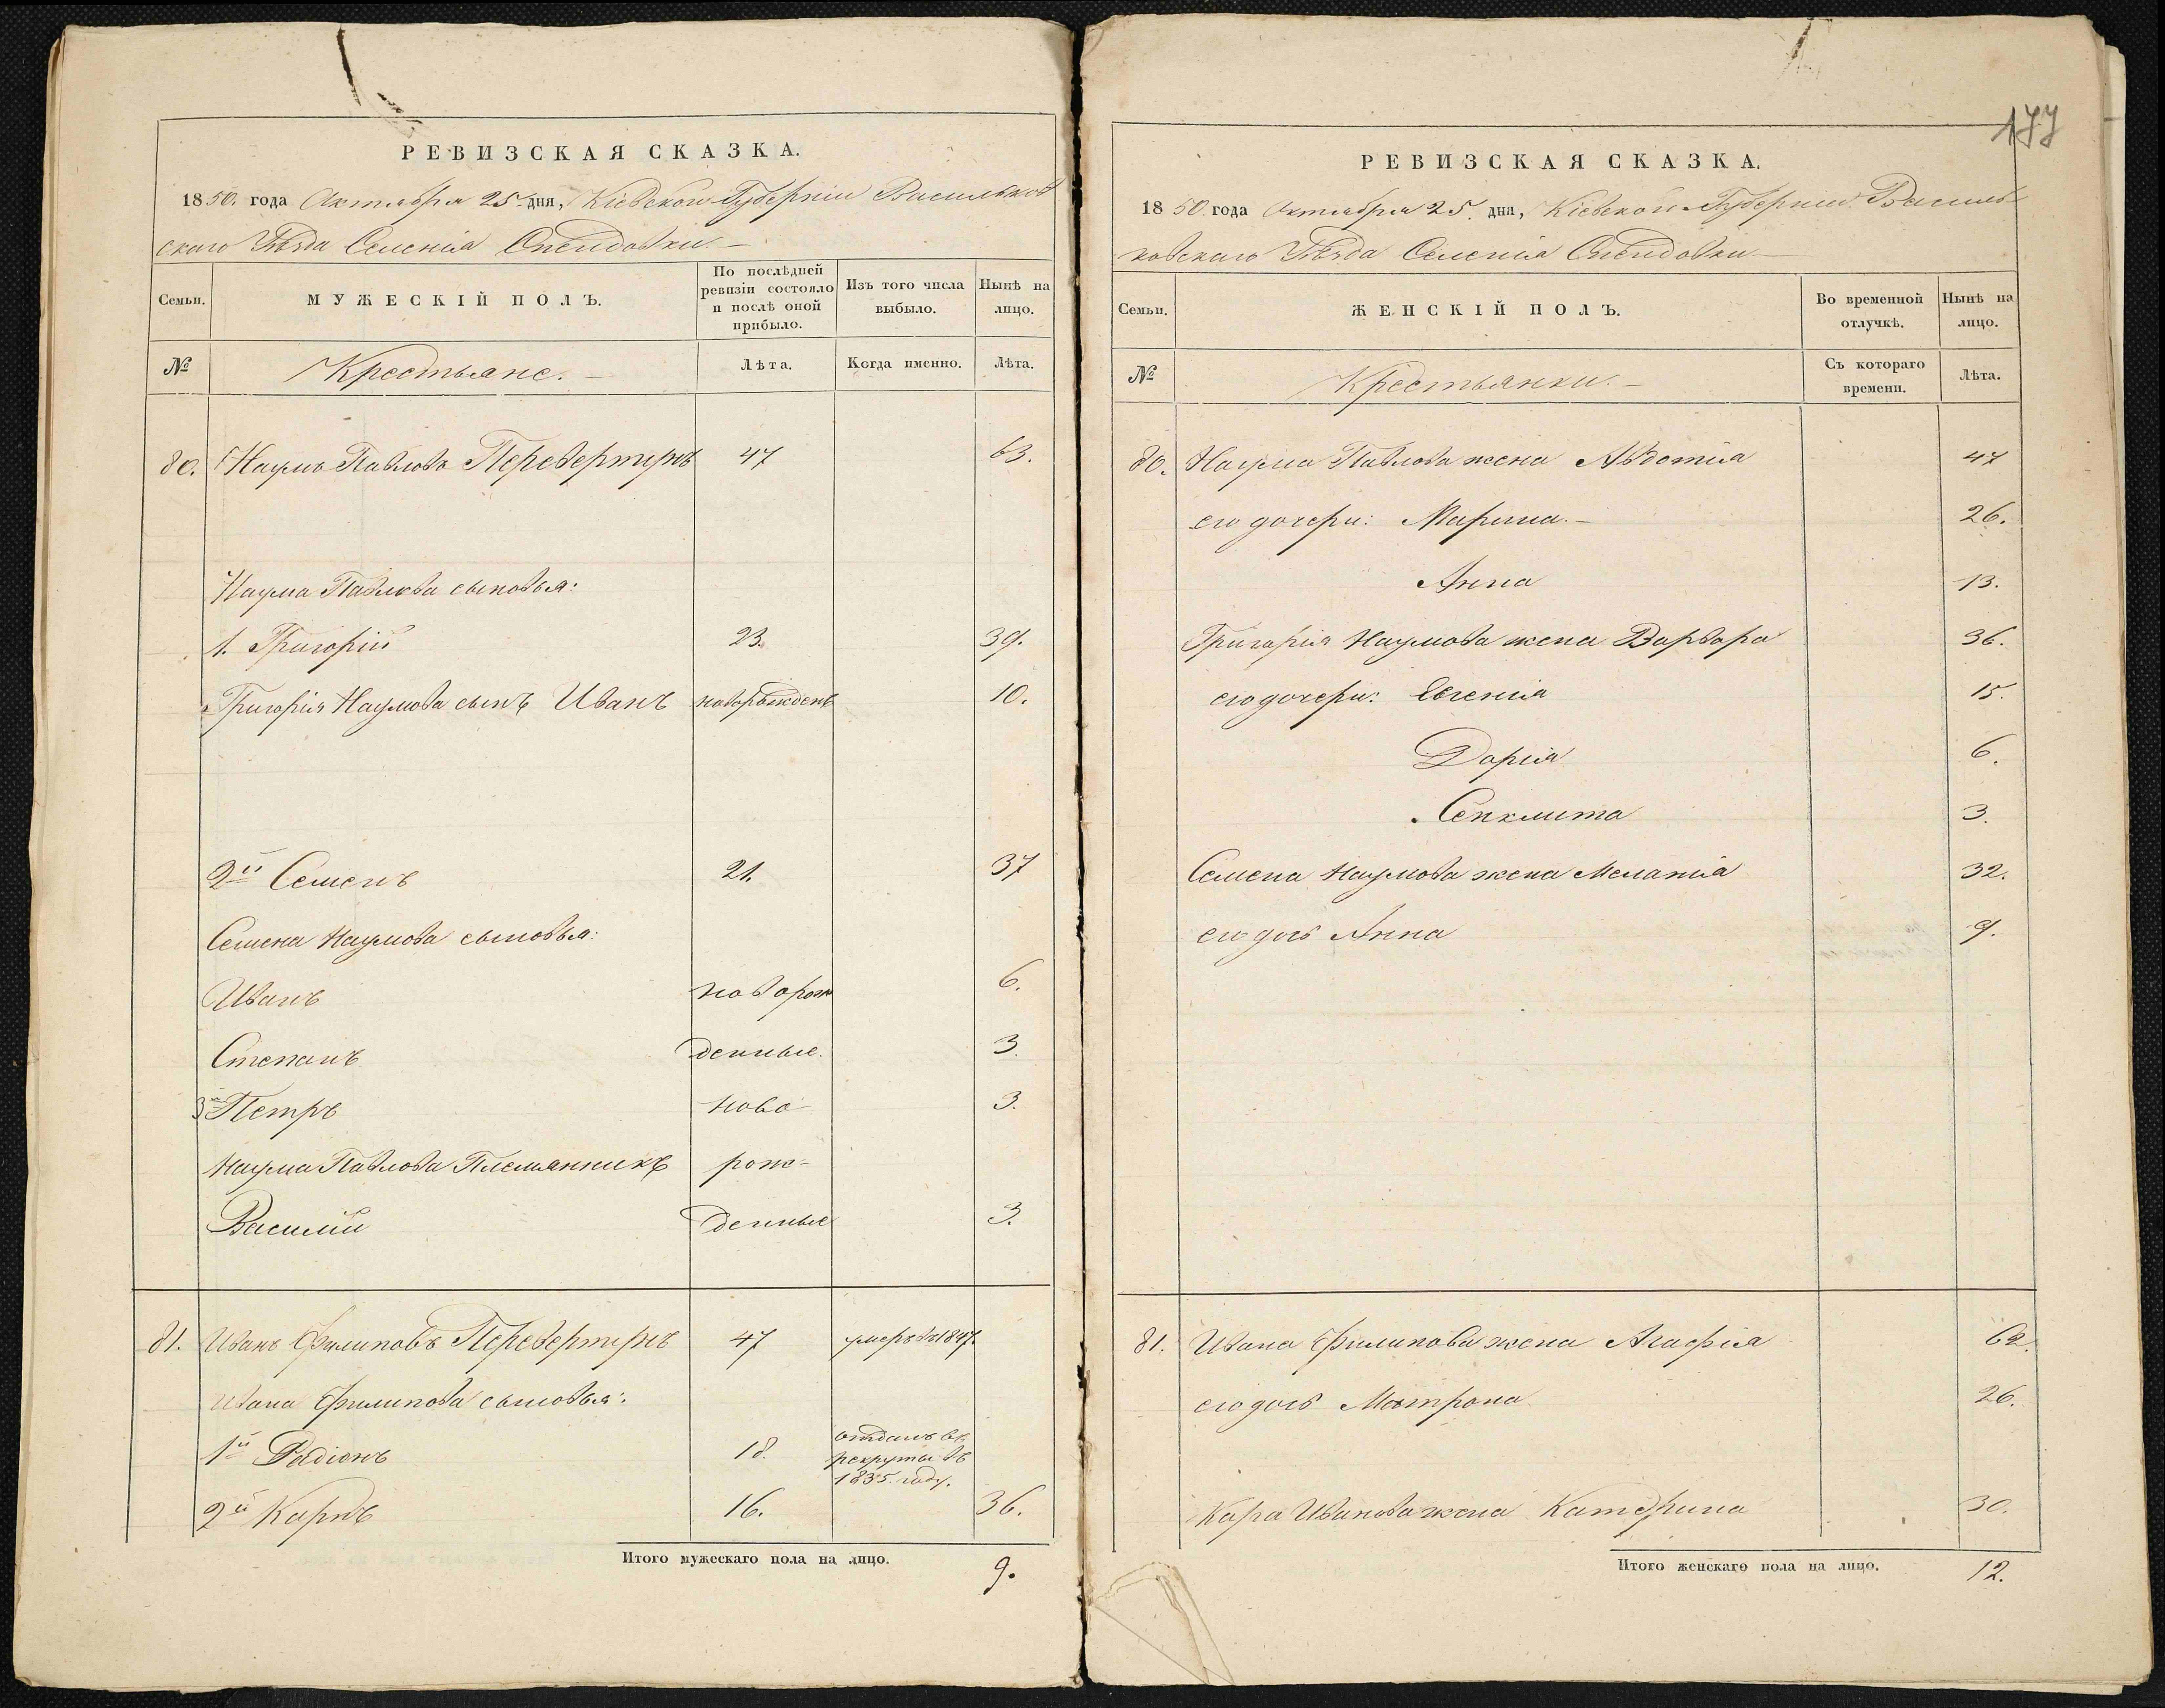 РЕВИЗСКАЯ СКАЗКА.
1850. года Октября 25 дня, Кіевской Губерніи Васильков
скаго Уѣзда Селенія
Семьи.
МУЖЕСКІЙ ПОЛЪ.
По послѣдней ревизіи состояло и послѣ оной прибыло.
Изъ того числа выбыло.
Нынѣ на лицо.
№
Крестьяне.
Лѣта.
Когда именно.
Лѣта.
80. Наумъ Павловъ Перевертунъ 47 63.
Наума Павлова сыновья:
1. Григорій 23. 39.
Григорія Наумова сынъ Иванъ новорожденъ 10.
2й Семенъ 21. 37
Семена Наумова сыновья:
Иванъ новорож 6.
Степанъ денные. 3.
3й Петръ ново 3.
Наума Павлова Племянникъ рож-
Василій денные 3.
81. Иванъ Филиповъ Перевертунъ 47 умеръ въ 1847.
Ивана Филипова сыновья:
1й Радіонъ 18. отданъ въ
рекруты въ
1835. году.
2й Карпъ 16. 36.
Итого мужескаго пола на лицо. 9.
177
РЕВИЗСКАЯ СКАЗКА.
1850 года Октября 25. дня, Кіевской Губерніи Василь-
ковскаго Уѣзда Селенія
Семьи.
ЖЕНСКІЙ ПОЛЪ.
Во временной отлучкѣ.
Нынѣ на лицо.
№
Крестьянки.
Съ котораго времени.
Лѣта.
80. Наума Павлова жена Авдотіа 47
его дочери: Марина. 26.
Анна 13.
Григорія Наумова жена Варвара 36.
его дочери: Евгенія 15.
Дарія 6.
Сенклита 3.
Семена Наумова жена Меланія 32.
его дочь Анна 9.
81. Ивана Филипова жена Агафія 62.
его дочь Мотрона 26.
Карпа Иванова жена Катерина 30.
Итого женскаго пола на лицо. 12.